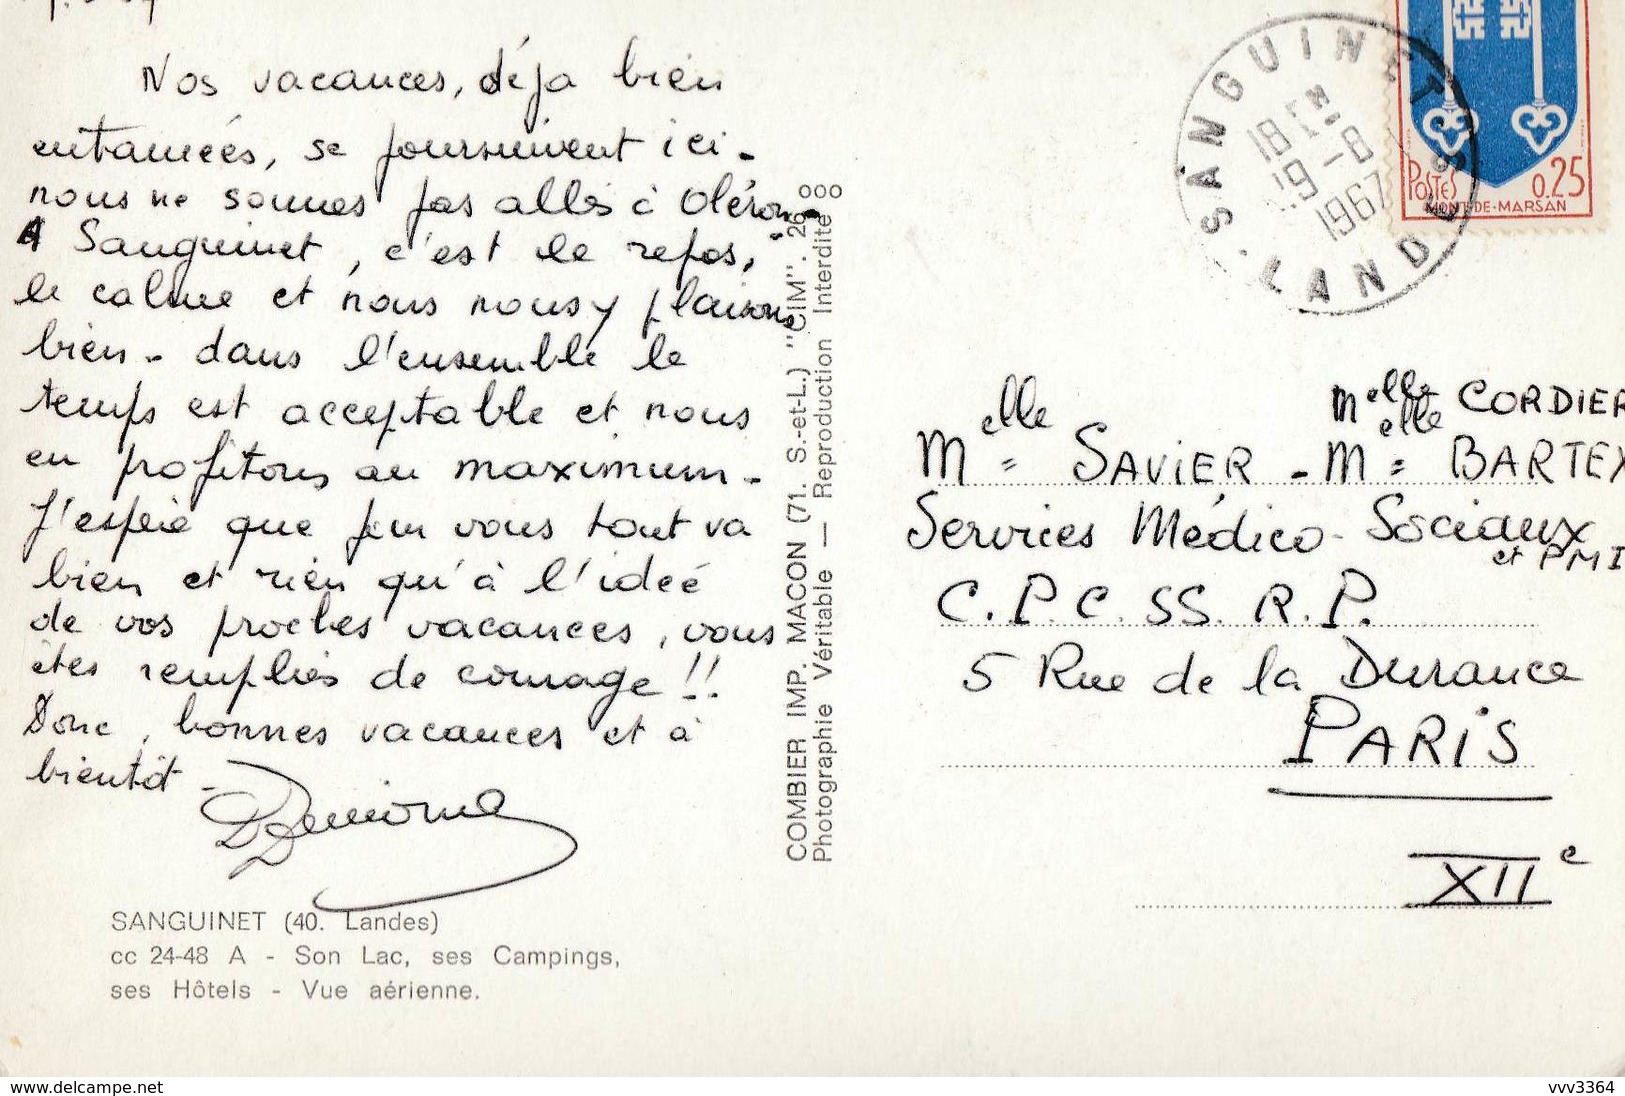 Nos vacances, déja bien
entamées, se poursuivent ici.
nous ne sommes pas allés à Oléron.
A Sanguinet, c'est le repos,
le calme et nous nous y plaisons
bien - dans l'ensemble le
temps est acceptable et nous
en profitons au maximum -
J'espère que pour vous tout va
bien et rien qu'à l'idée
de vos proches vacances, vous
êtes remplies de courage !!
Donc, bonnes vacances et à
bientôt -
SANGUINET (40. Landes)
cc 24-48 A - Son Lac, ses Campings,
ses Hôtels - Vue aérienne.
COMBIER IMP. MACON (71. S.-et-L.) "CIM". 26
Photographie Véritable — Reproduction Interdite
SANGUINET
18H
19-8
1967
LANDES
POSTES 0.25
MONT-DE-MARSAN
Melle CORDIER
Melle SAVIER - Melle BARTEX
Services Médico-Sociaux
et PMI
C.P.C.SS.R.P.
5 Rue de la Durance
PARIS
XIIe
www.delcampe.net
vvv3364